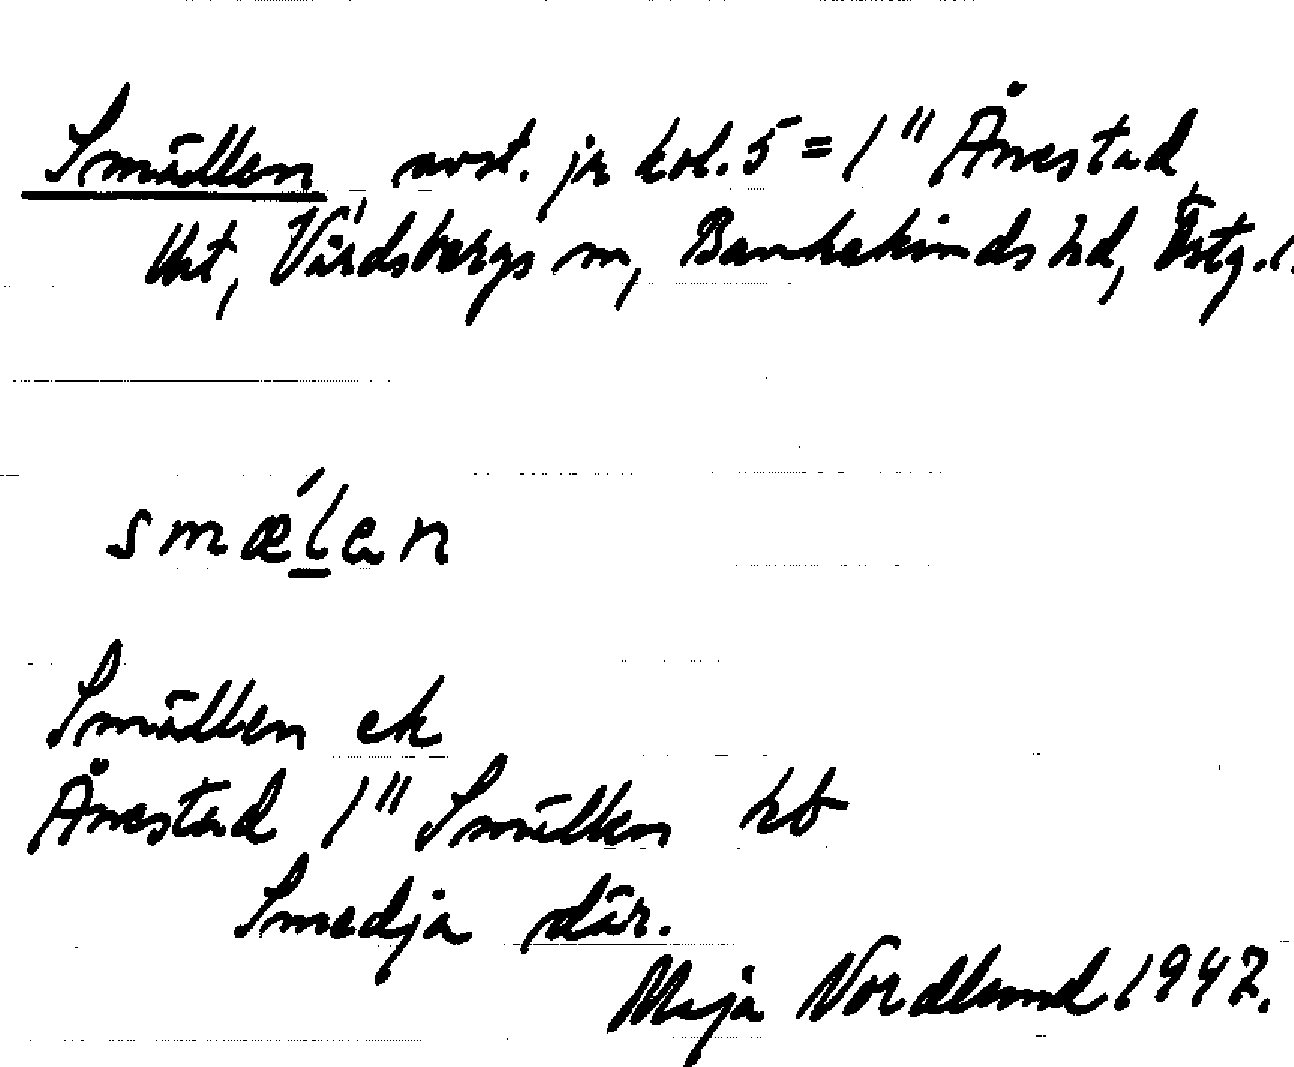 Smällen avst. ja kol. 5 = 1" Ånestad
Ukt, Vårdsbergs sn, Bankekinds hd, Östg. l.
smæ´lan
Smällen ek
Ånestad 1" Smällen hb
Smedja där.
Maja Nordlund 1947.